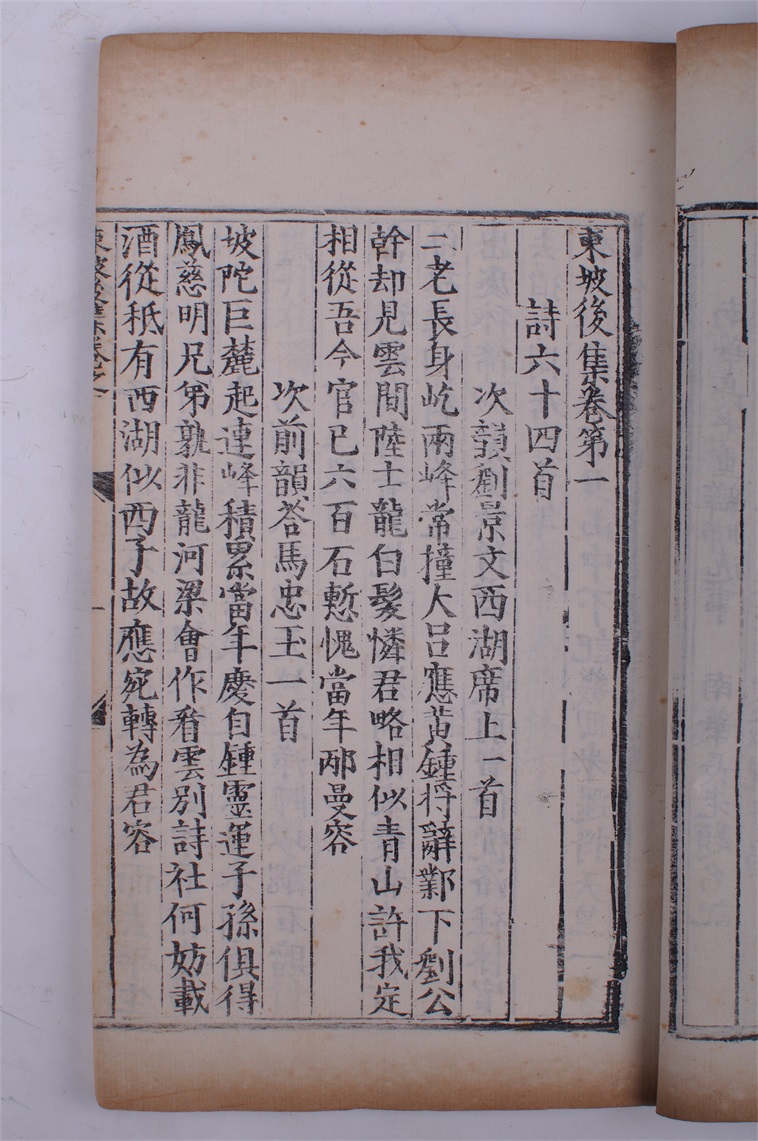 東坡後集卷第一
詩六十四首
次韻劉景文西湖席上一首
二老長身屹兩峰常撞大呂應黃鍾將辭鄴下劉公
幹却見雲間陸士龍白髮憐君略相似青山許我定
相從吾今官已六百石慙愧當年邴曼容
次前韻荅馬忠玉一首
坡陀巨麓起連峰積累當年慶自鍾靈運子孫俱得
鳳慈明兄弟孰非龍河梁會作看雲別詩社何妨載
酒從秖有西湖似西子故應宛轉為君容
東坡後集卷之一